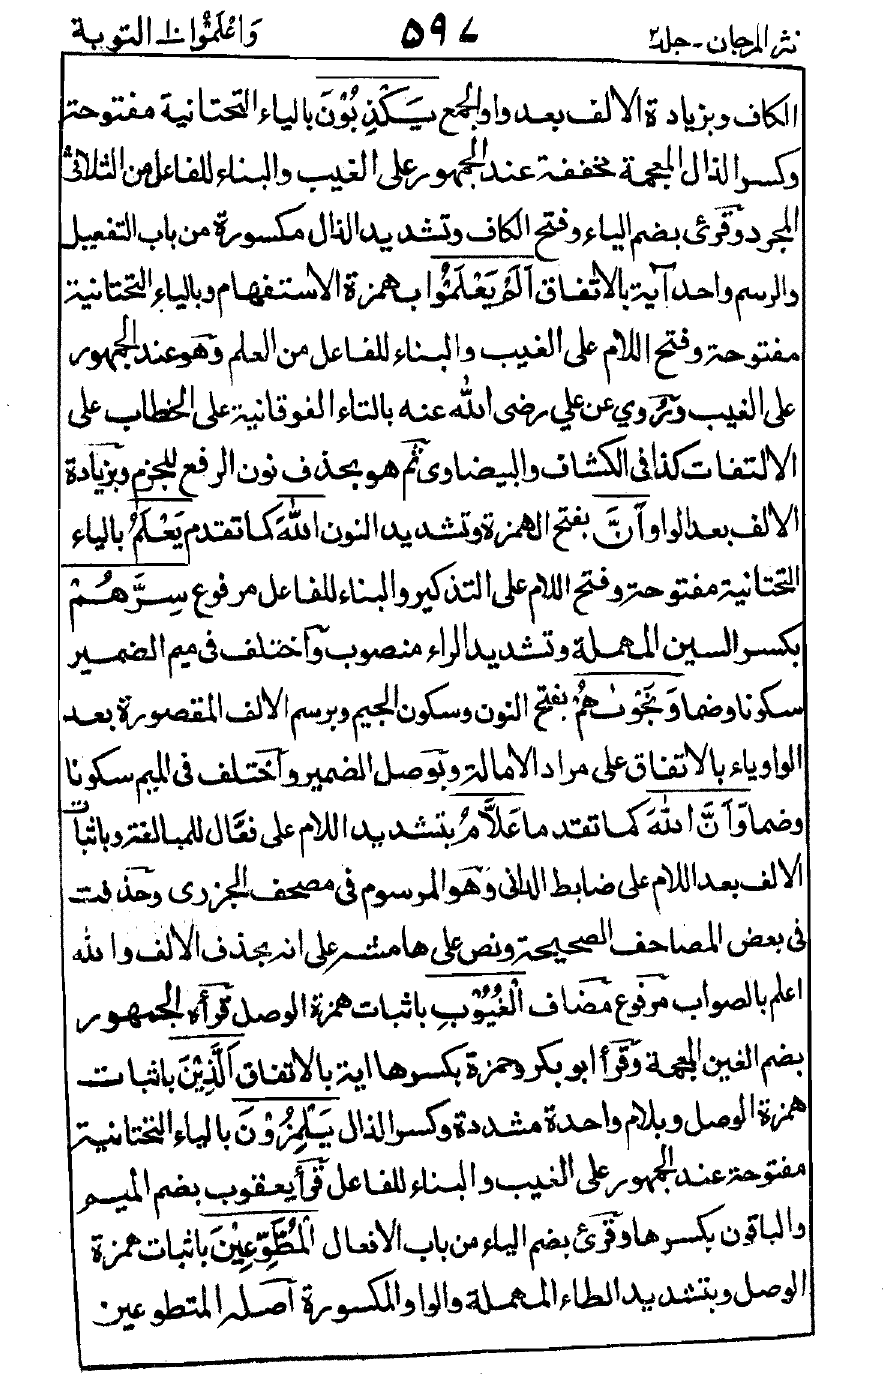 نثر المرجان - جلد٢ ٥٩٧ واعلموا ١٠ التوبة
الكاف وبزيادة الالف بعد واو الجمع يَكْذِبُوْنَ بالياء التحتانية مفتوحة
وكسر الذال المعجمة مخففة عند الجمهور على الغيب والبناء للفاعل من الثلاثى
المجرد وقرئ بضم الياء وفتح الكاف وتشديد الذال مكسورة من باب التفعيل
والرسم واحد آية بالاتفاق اَلَمْ يَعْلَمُوْا بهمزة الاستفهام وبالياء التحتانية
مفتوحة وفتح اللام على الغيب والبناء للفاعل من العلم وهو عند الجمهور
على الغيب وَرُوي عن علي رضى الله عنه بالتاء الفوقانية على الخطاب على
الالتفات كذا فى الكشاف والبيضاوى ثم هو بحذف نون الرفع للجزم وبزيادة
الالف بعد الواو اَنَّ بفتح الهمزة وتشديد النون اللهَ كما تقدم يَعْلَمُ بالياء
التحتانية مفتوحة وفتح اللام على التذكير والبناء للفاعل مرفوع سِرَّهُمْ
بكسر السين المهملة وتشديد الراء منصوب واختلف فى ميم الضمير
سكونا وضما وَنَجْوٰىهُمْ بفتح النون وسكون الجيم وبرسم الالف المقصورة بعد
الواو ياء بالاتفاق على مراد الامالة وبوصل الضمير واختلف فى الميم سكونا
وضما وَاَنَّ اللهَ كما تقدما عَلَّامُ بتشديد اللام على فعّال للمبالغة وباثبات
الالف بعد اللام على ضابط الدانى وهو المرسوم فى مصحف الجزرى وحذفت
فى بعض المصاحف الصحيحة ونص على هامشه على انه بحذف الالف والله
اعلم بالصواب مرفوع مضاف الْغُيُوْبِ باثبات همزة الوصل قرأه الجمهور
بضم الغين المعجمة وقرأ ابو بكر وحمزة بكسرها اية بالاتفاق اَلَّذِيْنَ باثبات
همزة الوصل وبلام واحدة مشددة وكسر الذال يَلْمِزُوْنَ بالياء التحتانية
مفتوحة عند الجمهور على الغيب والبناء للفاعل قرأ يعقوب بضم الميم
والباقون بكسرها وقرئ بضم الياء من باب الافعال الْمُطَّوِّعِيْنَ باثبات همزة
الوصل وبتشديد الطاء المهملة والواو المكسورة اصله المتطوعين